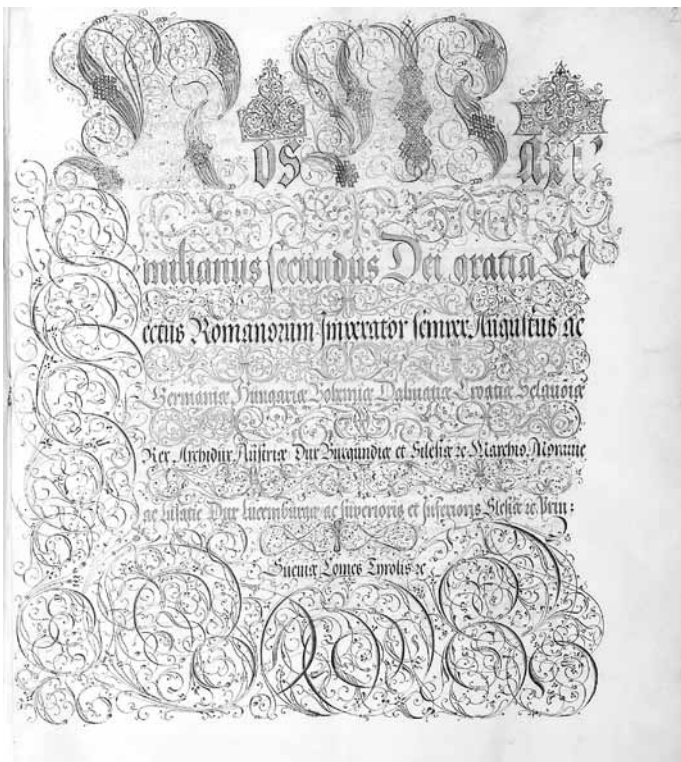 Nos Maxi:
milianus secundus Dei gratia El
ectus Romanorum Imperator semper Augustus ac
Germaniæ Hungariæ Bohemiæ Dalmatiæ Croatiæ Sclauoniæ
Rex Archidux Austriæ Dux Burgundiæ et Silesiæ ꝛc Marchio Morauie
ac Lusatie Dux Lucemburgæ ac superioris et inferioris Slesiæ ꝛc Prin:
Sueuiæ Comes Tyrolis ꝛc